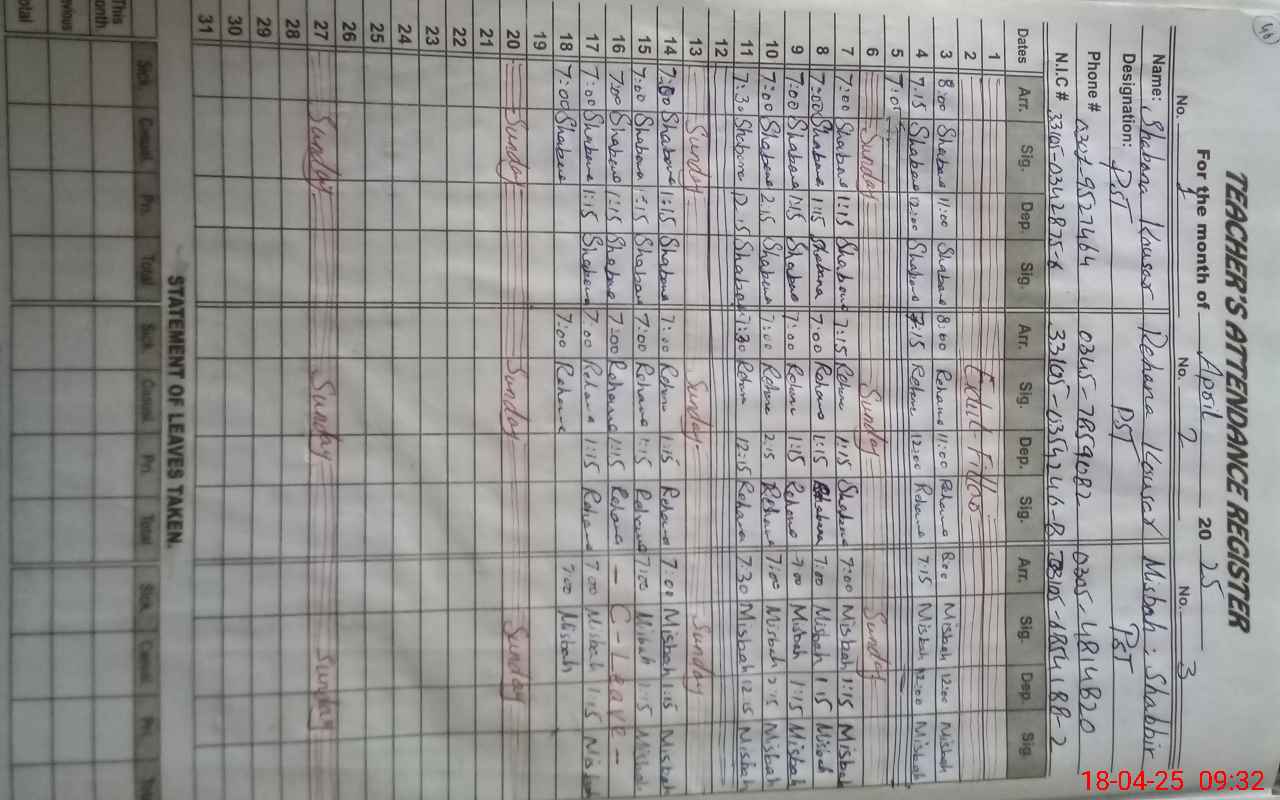 46
TEACHER'S ATTENDANCE REGISTER
For the month of April 2025
No. 1 No. 2 No. 3
Name: Shabana Kousar Rehana Kousar Misbah Shabbir
Designation: PST PST PST
Phone # 0345-7859082 0305-4814820
N.I.C #
Dates Arr. Sig. Dep. Sig. Arr. Sig. Dep. Sig. Arr. Sig. Dep. Sig.
1
2 Eidul-Fitter
3 8:00 Shabana 11:00 Shabana 8:00 Rehana 11:00 Rehana 8:00 Misbah 12:00 Misbah
4 7:15 Shabana 12:00 Shabana 7:15 Rehana 12:00 Rehana 7:15 Misbah 12:00 Misbah
5 7:0
6 Sunday Sunday Sunday
7 7:00 Shabana 1:15 Shabana 7:15 Rehana 1:15 7:00 Misbah 1:15 Misbah
8 7:00 Shabana 1:15 Shabana 7:00 Rehana 1:15 Rehana 7:00 Misbah 1:15 Misbah
9 7:00 Shabana 1:15 Shabana 7:00 Rehana 1:15 Rehana 7:00 Misbah 1:15 Misbah
10 7:00 Shabana 2:15 Shabana 7:00 Rehana 2:15 Rehana 7:00 Misbah 2:15 Misbah
11 7:30 Shabana 12:15 Shabana 7:30 Rehana 12:15 Rehana 7:30 Misbah 12:15 Misbah
12
13 Sunday Sunday Sunday
14 7:00 Shabana 1:15 Shabana 7:00 Rehana 1:15 Rehana 7:00 Misbah 1:15 Misbah
15 7:00 Shabana 1:15 Shabana 7:00 Rehana 1:15 Rehana 7:00 Misbah 1:15 Misbah
16 7:00 Shabana 1:15 Shabana 7:00 Rehana 1:15 Rehana - C-Leave -
17 7:00 Shabana 1:15 Shabana 7:00 Rehana 1:15 Rehana 7:00 Misbah 1:15 Misbah
18 7:00 Shabana 7:00 Rehana 7:00 Misbah
19
20 Sunday Sunday Sunday
21
22
23
24
25
26
27 Sunday Sunday Sunday
28
29
30
31
STATEMENT OF LEAVES TAKEN.
Sick. Casual. Pri. Total Sick. Casual. Pri. Total Sick. Casual. Pri. Total
This
onth.
vious
otal
18-04-25 09:32